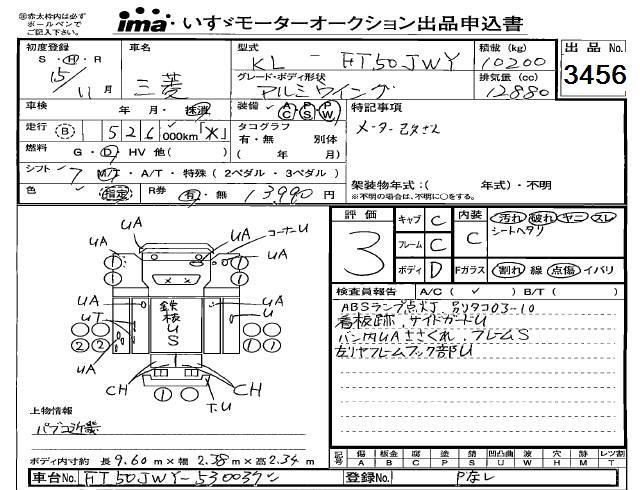 ※赤太枠内は必ず
ボールペンで
ご記入下さい。
ima・いすゞモーターオークション出品申込書
初度登録 車名 型式 積載(kg) 出品No.
S・H・R 三菱 KL - FT50JWY 10200
15/11月 グレード・ボディ形状 排気量(cc) 3456
アルミウイング 12880
車検 年・月・抹消 装備 AC PS PW 特記事項
走行 B 1526,000km「水」 タコグラフ メーター乙きさん
有・無 別体
燃料 G・D・HV 他( ) ( 年 月)
シフト 7 M/T・A/T・特殊(2ペダル・3ペダル) 架装物年式:( 年式)・不明
色 指定 R券 有・無 13,990円 ※不明の場合は、不明に○をする。
評価 3 キャブ C 内装 C 汚れ 破れ ヤニ スレ
シートヘタリ
フレーム C
ボディ D Fガラス 割れ 線 点傷 イバリ
検査員報告 A/C( ✓ ) B/T( )
ABSランプ点灯 別タコ03-10
看板跡、サイドガードU
バンパUAささくれ、フレームS
左リヤフレームフック部U
UA UA コーナーU
1 1
1 1
UA 鉄板US UA
UT U
2 2 1 1
UA
CH CH
T.U
1 1
上物情報
パブコ近畿
ボディ内寸約 長9.60m×幅2.38m×高2.34m
記号 傷A 板金B 腐C 塗P 錆S 凹凸曲U 波W 穴H 跡M レツ割T
車台No. FT50JWY-530037 登録No. Pなし